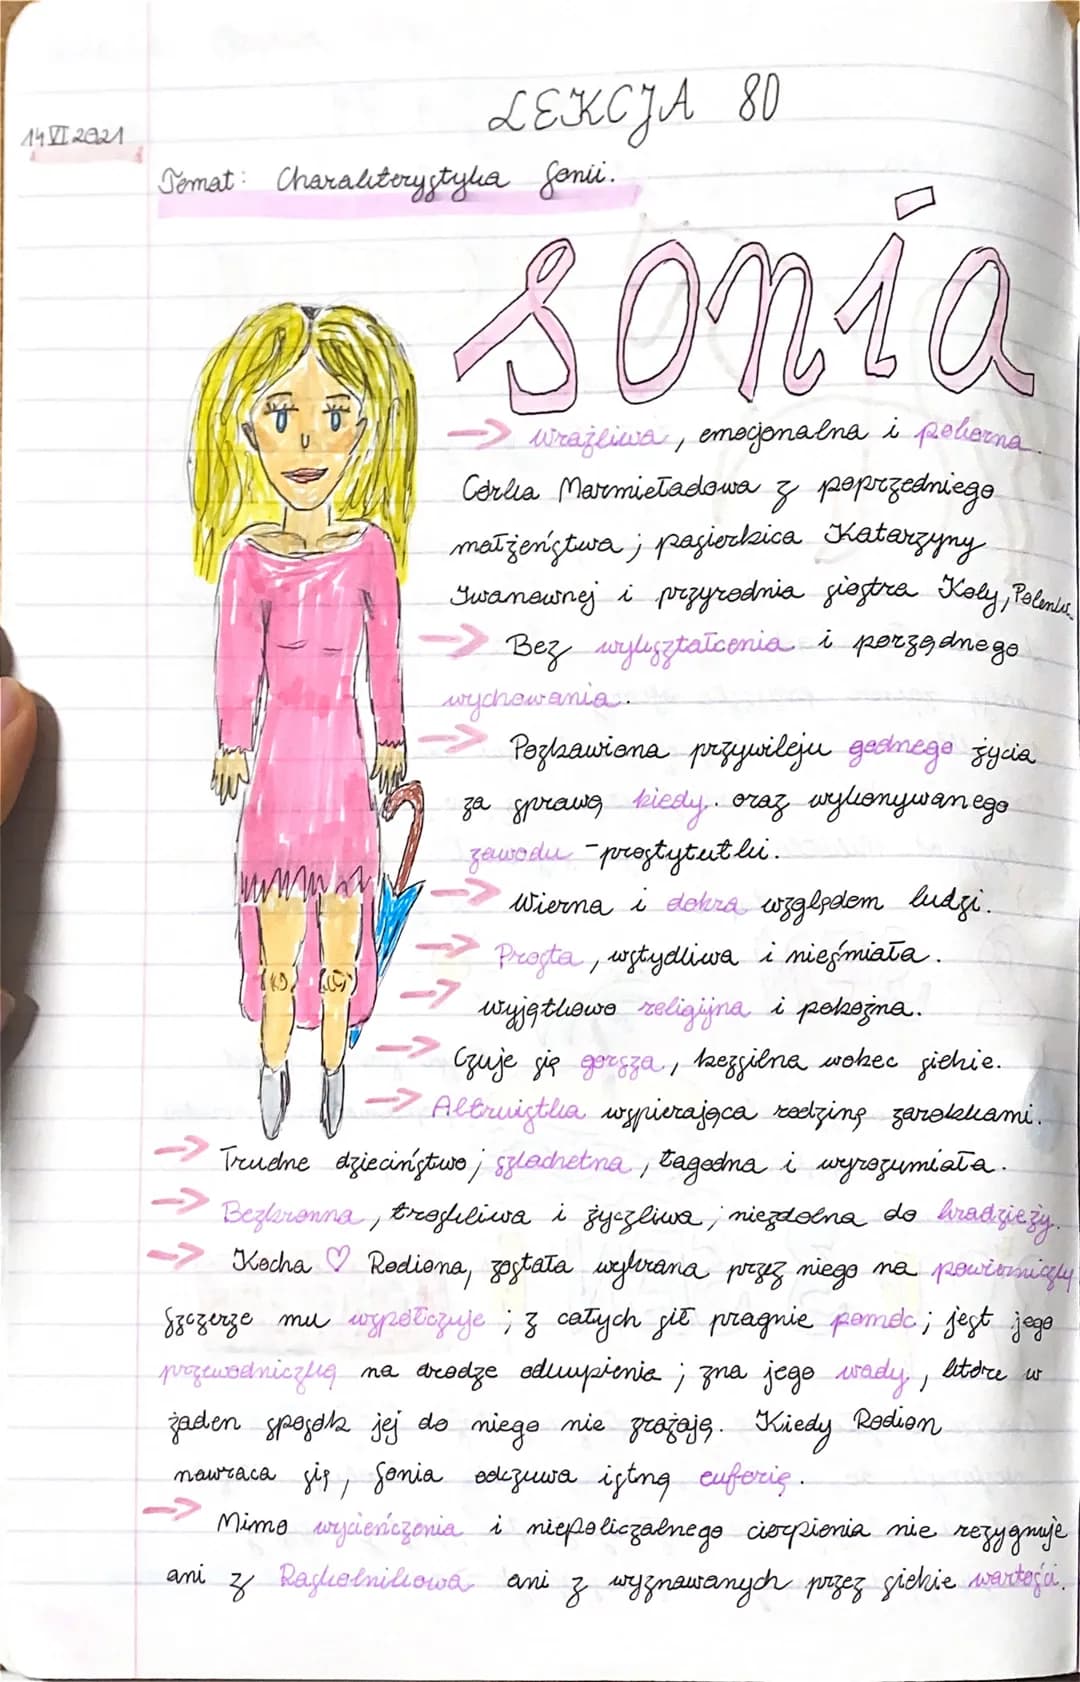 LEKCJA 80
14 VI 2021
Temat: Charakterystyka Sonii.
sonia
→ wrażliwa, emocjonalna i pokorna.
Córka Marmieładowa z poprzedniego
małżeństwa; pasierbica Katarzyny
Iwanownej i przyrodnia siostra Koly, Polenki
→ Bez wykształcenia i porządnego
wychowania.
→ Pozbawiona przywileju godnego życia
za sprawą biedy. oraz wykonywanego
zawodu - prostytutki.
→ Wierna i dobra względem ludzi.
→ Prosta, wstydliwa i nieśmiała.
→ wyjątkowo religijna i pobożna.
→ Czuje się gorsza, bezsilna wobec siebie.
→ Altruistka wspierająca rodzinę zarobkami.
→ Trudne dzieciństwo; szlachetna, łagodna i wyrozumiała.
→ Bezbronna, troskliwa i życzliwa; niezdolna do kradzieży.
→ Kocha ♡ Rodiona, została wybrana przez niego na powierniczkę
Szczerze mu współczuje; z całych sił pragnie pomóc; jest jego
przewodniczką na drodze odkupienia; zna jego wady, które w
żaden sposób jej do niego nie zrażają. Kiedy Rodion
nawraca się, Sonia odczuwa istną euforię.
→ Mimo wycieńczenia i niepoliczalnego cierpienia nie rezygnuje
ani z Raskolnikowa ani z wyznawanych przez siebie wartości.